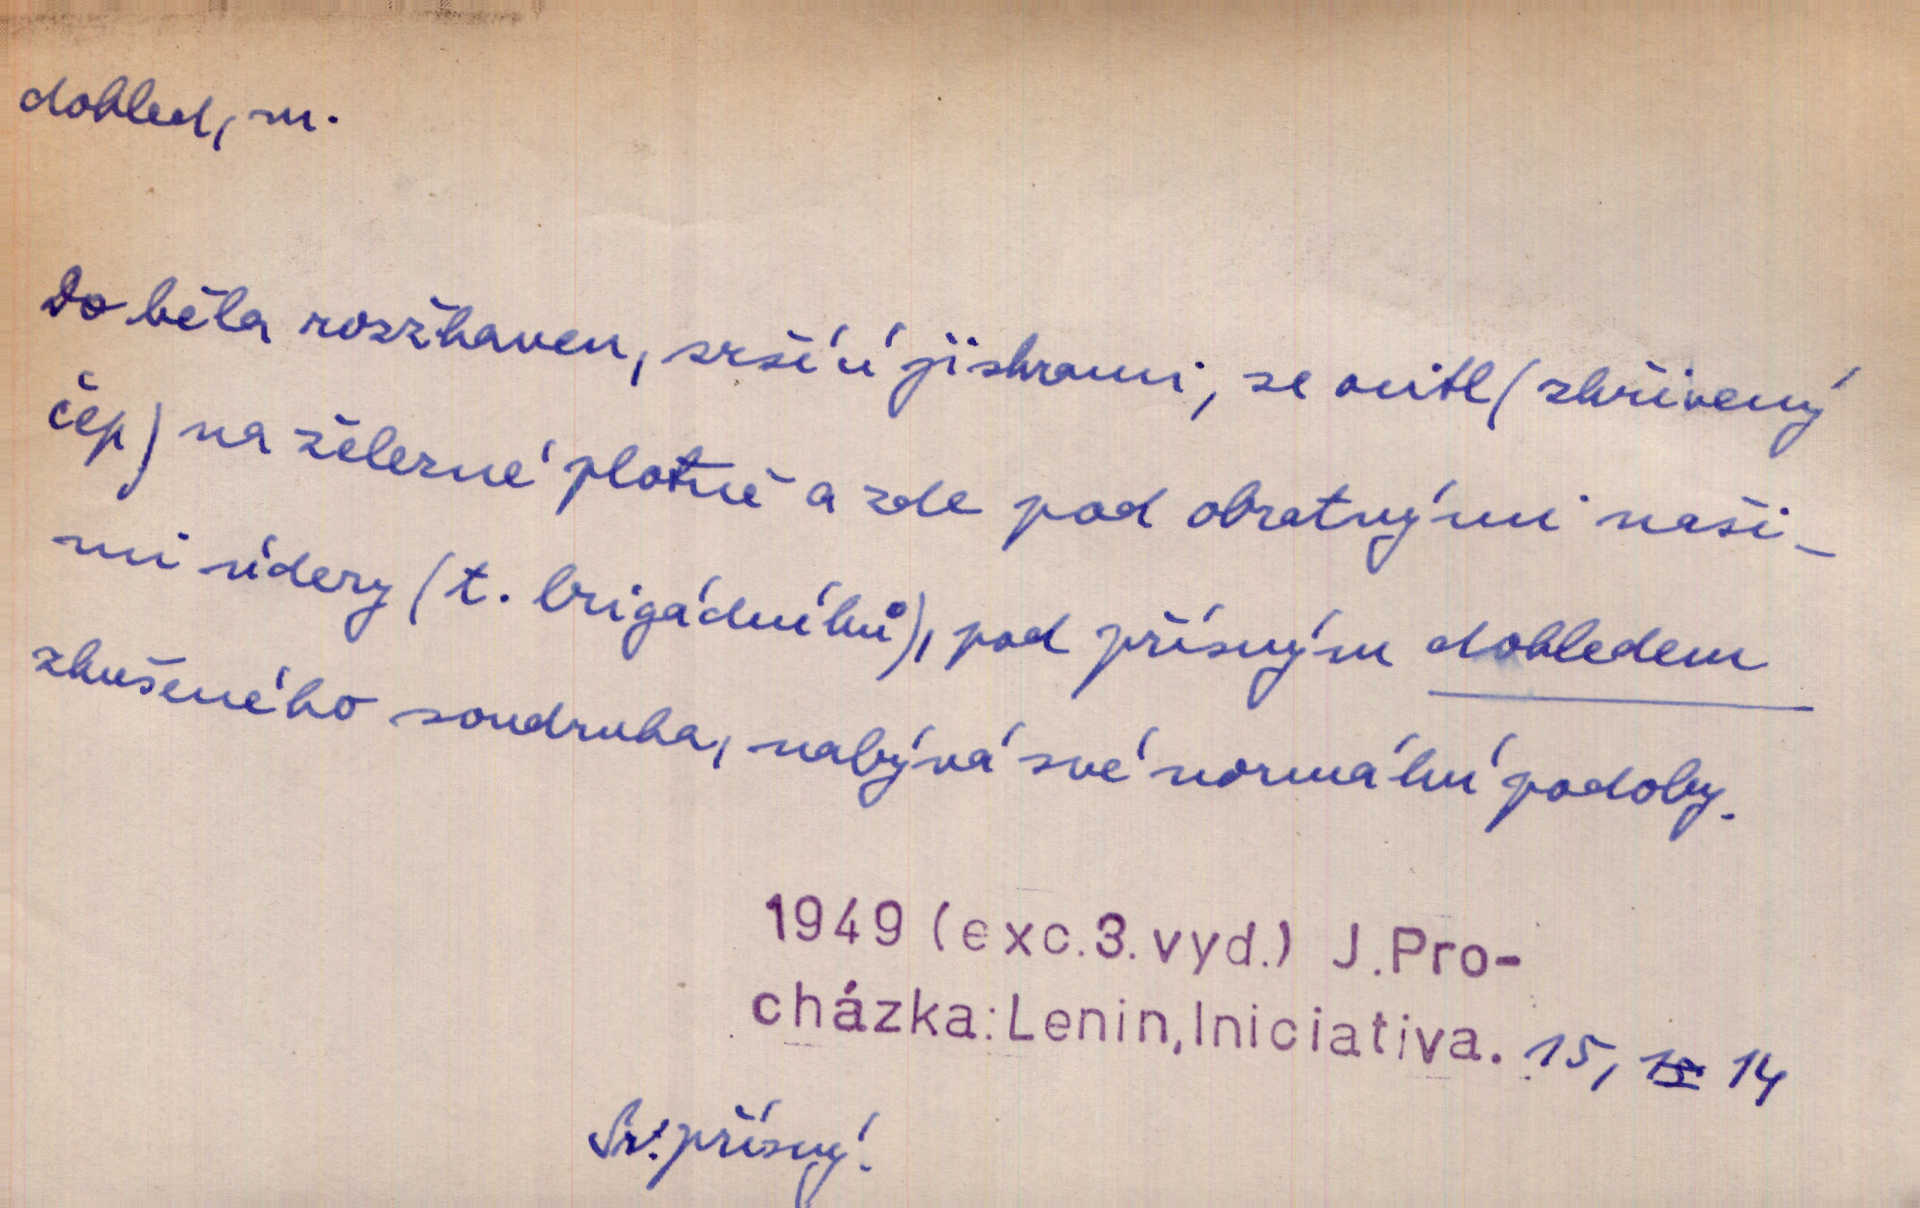 dohled, m.
Do běla rozžhaven, sršíc jiskrami, se octl (zkřivený
čep) na železné plotně a zde pod obratnými naši-
mi údery (t. brigádníků), pod přísným dohledem
zkušeného soudruha, nabývá své normální podoby.
1949 (exc.3.vyd.) J.Pro-
cházka:Lenin,Iniciativa. 15, 14
Sr. přísný.